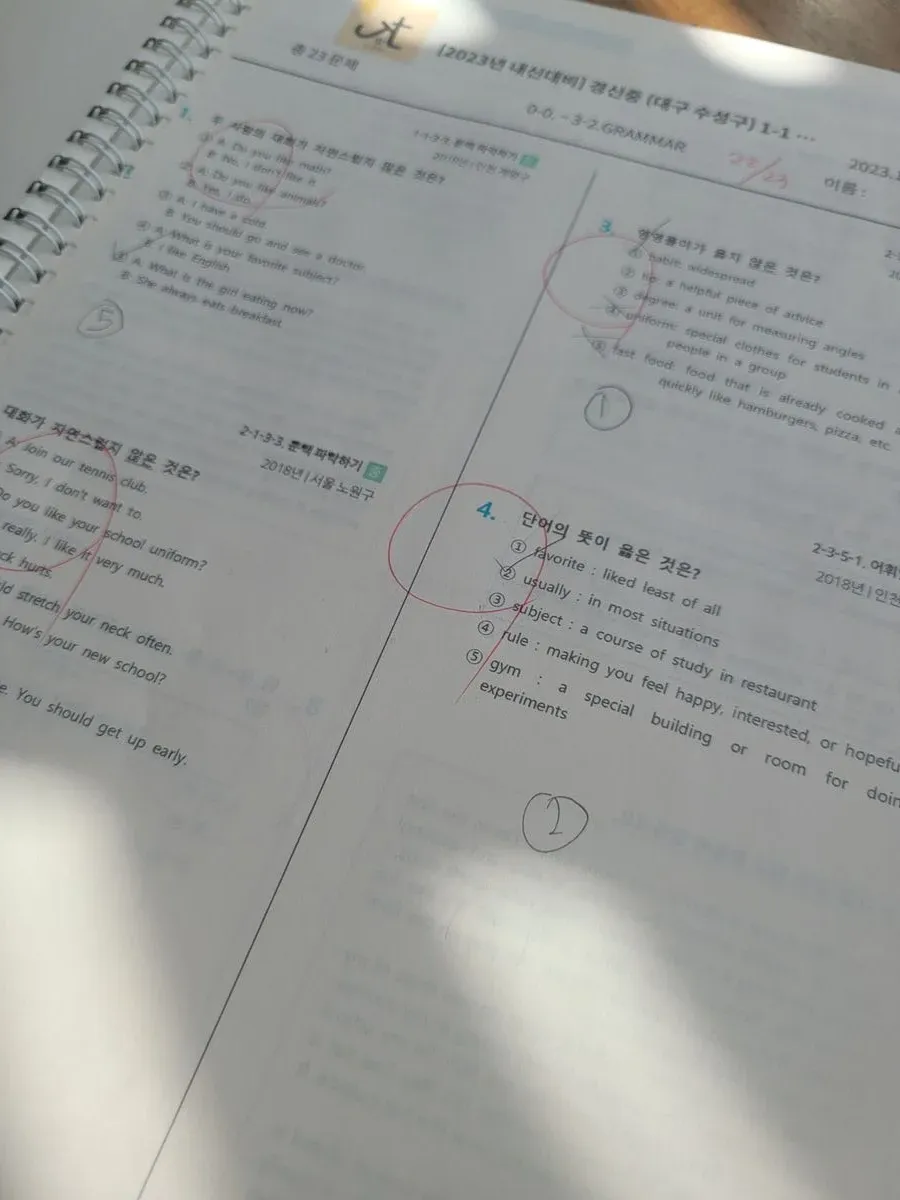 총 23 문제
[2023년 내신대비] 경신중 (대구 수성구) 1-1 ...
0-0. ~ 3-2.GRAMMAR
2023.
이름 :
1-1-3-3. 문맥 파악하기
2018년 | 인천 계양구
1.
두 사람의 대화가 자연스럽지 않은 것은?
① A: Do you like math?
B: No, I don't like it.
② A: Do you like animals?
B: Yes, I do.
③ A: I have a cold.
B: You should go and see a doctor.
④ A: What is your favorite subject?
B: I like English.
⑤ A: What is the girl eating now?
B: She always eats breakfast.
⑤
2-1-3-3. 문맥 파악하기
2018년 | 서울 노원구
대화가 자연스럽지 않은 것은?
A: Join our tennis club.
Sorry, I don't want to.
Do you like your school uniform?
really. I like it very much.
ck hurts.
ld stretch your neck often.
How's your new school?
e. You should get up early.
3.
영영풀이가 옳지 않은 것은?
① habit: widespread
② tip: a helpful piece of advice
③ degree: a unit for measuring angles
④ uniform: special clothes for students in
people in a group
⑤ fast food: food that is already cooked
quickly like hamburgers, pizza, etc.
①
2-3-5-1. 어휘
2018년 | 인천
4.
단어의 뜻이 옳은 것은?
① favorite : liked least of all
② usually : in most situations
③ subject : a course of study in restaurant
④ rule : making you feel happy, interested, or hopefu
⑤ gym : a special building or room for doin
experiments
②